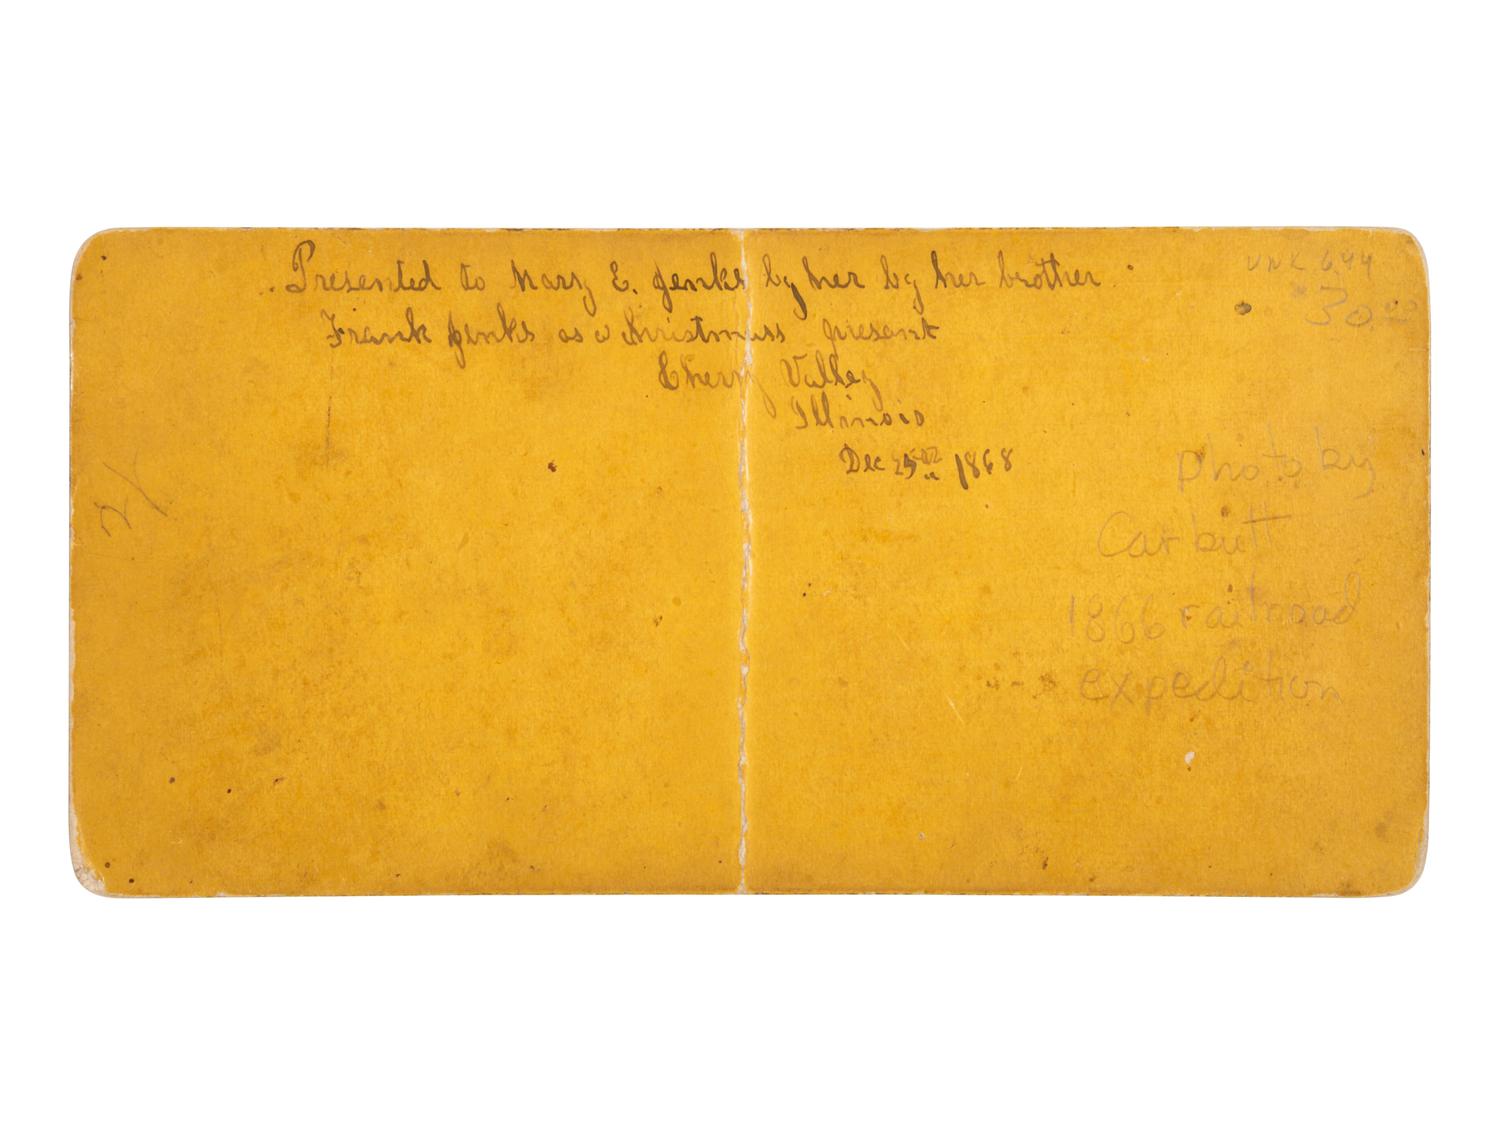 Presented to Mary E. Jenks by her by her brother
Frank Jenks as a Christmass present
Cherry Valley
Illinois
Dec 25 1868
UNK 644
30.00
photo by
Carbutt
1866 railroad
expedition